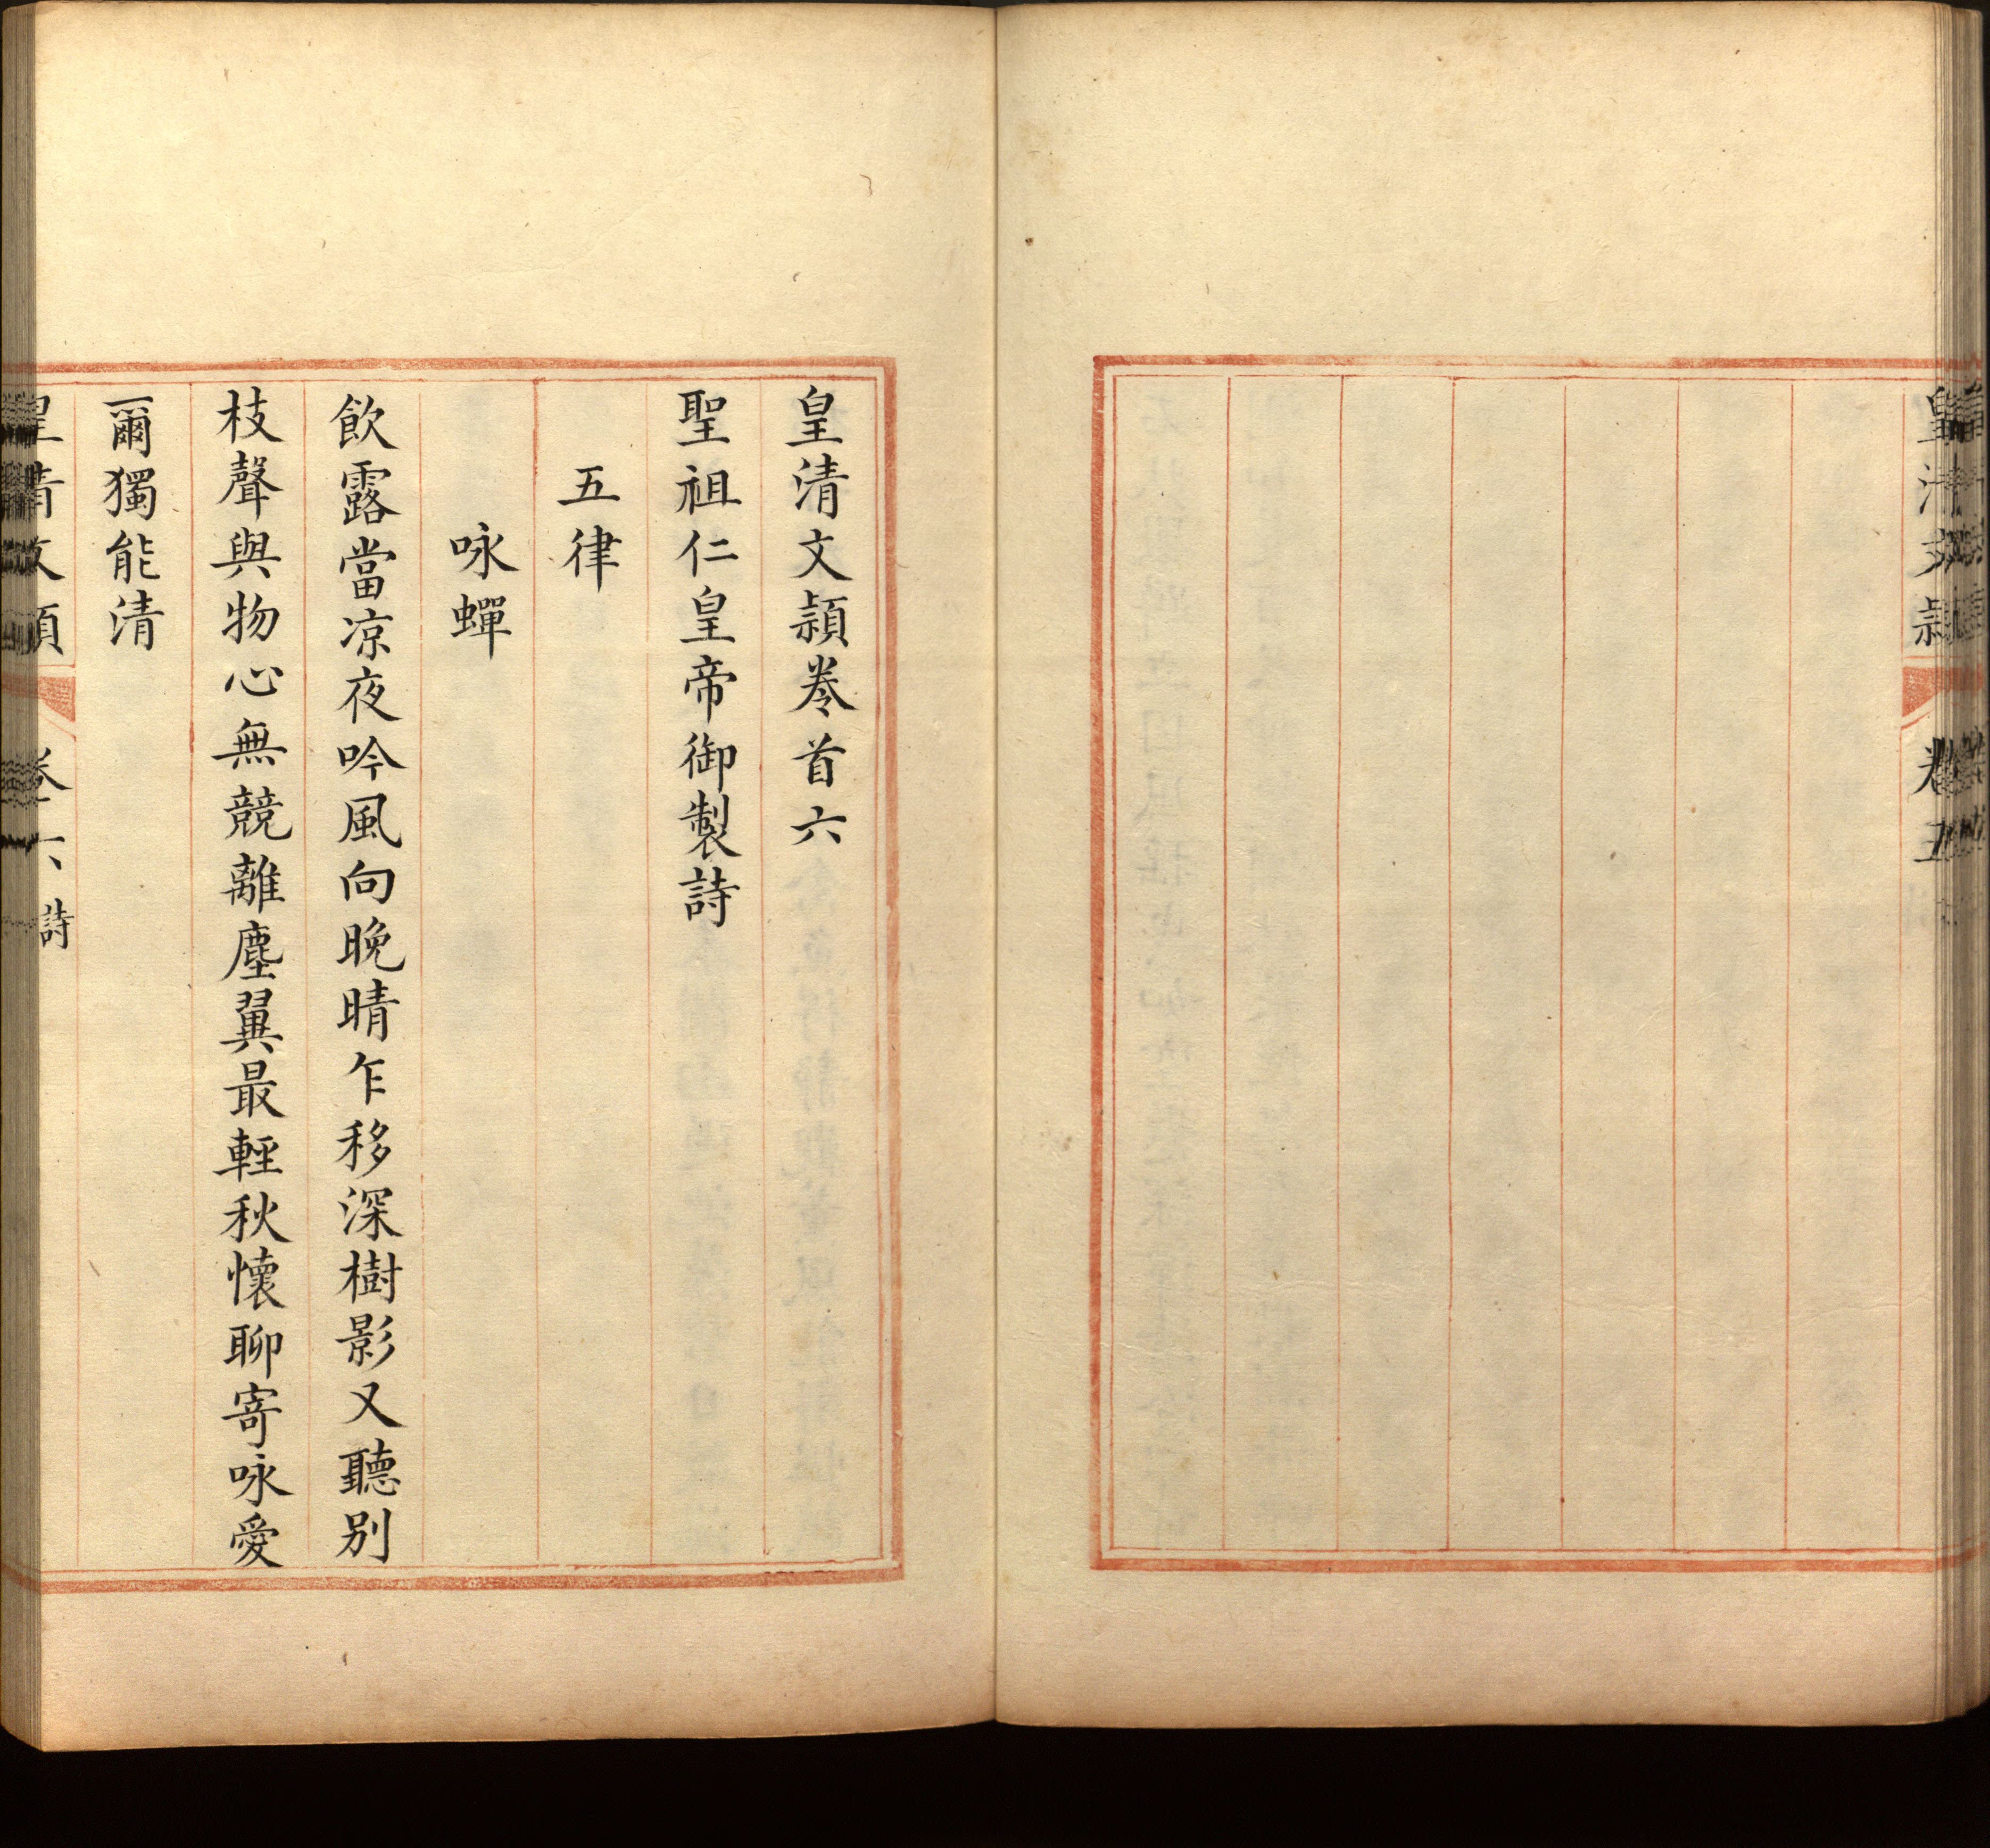 皇清文穎
卷五
皇清文穎卷首六
聖祖仁皇帝御製詩
五律
咏蟬
飲露當凉夜吟風向晚晴乍移深樹影又聽别
枝聲與物心無競離塵翼最輕秋懷聊寄咏愛
爾獨能清
皇清文穎
卷六
詩